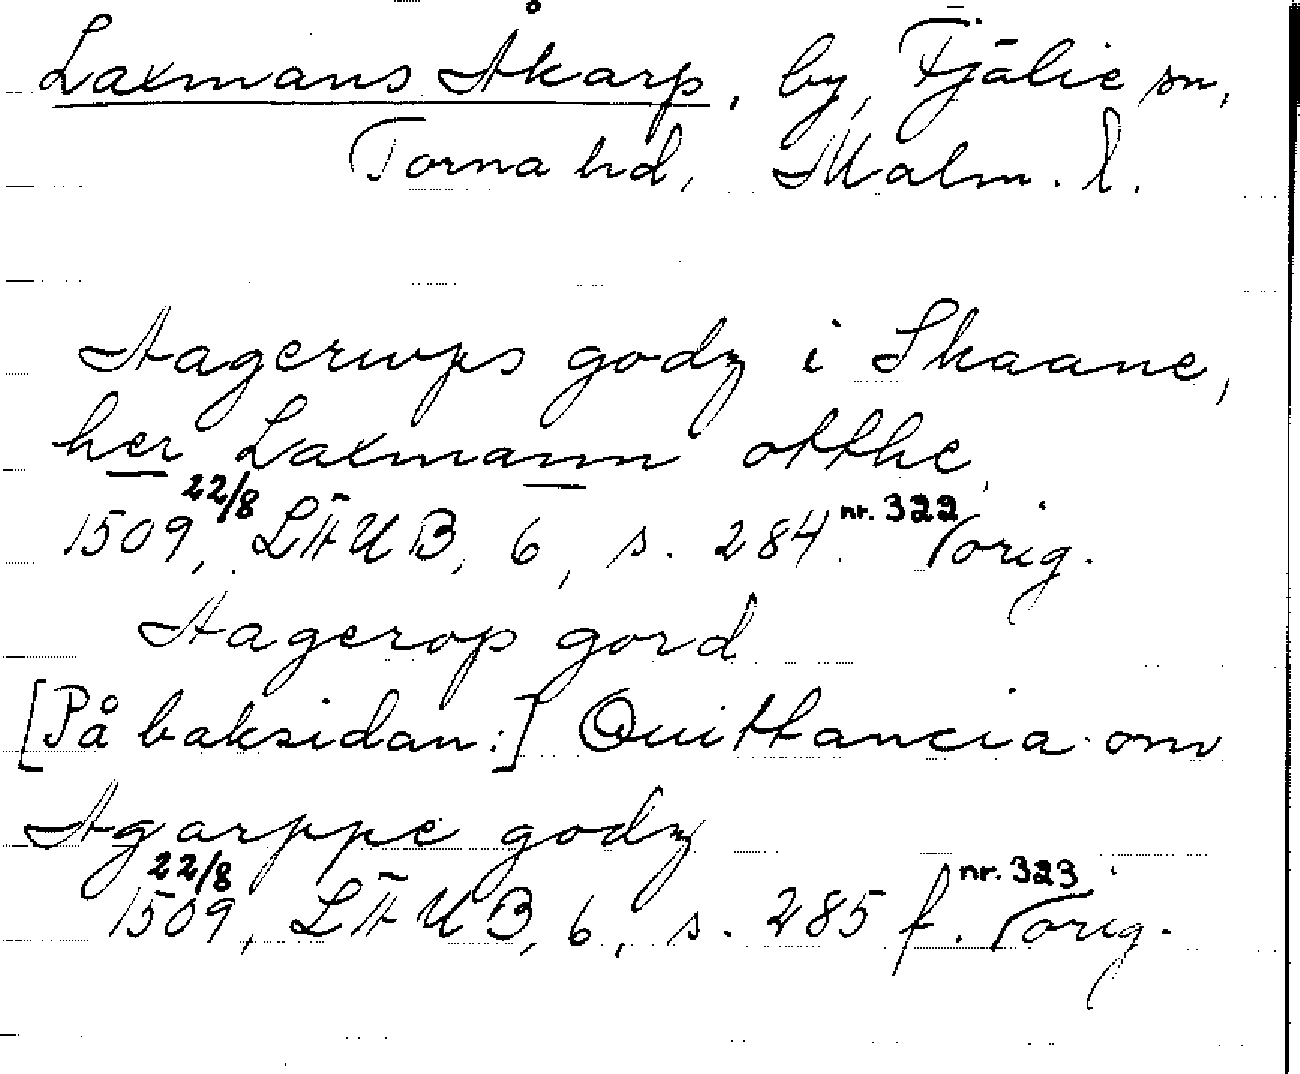 Laxmans Åkarp, by, Fjälie sn,
Torna hd, Malm. l.
Aagerwps godz i Skaane,
her Laxmann otthe
1509 22/8, LÄUB, 6, s. 284. nr. 322 orig.
Aagerop gord
[På baksidan:] Quittancia om
Agarppe godz
1509 22/8, LÄUB, 6, s. 285 f. nr. 323 orig.